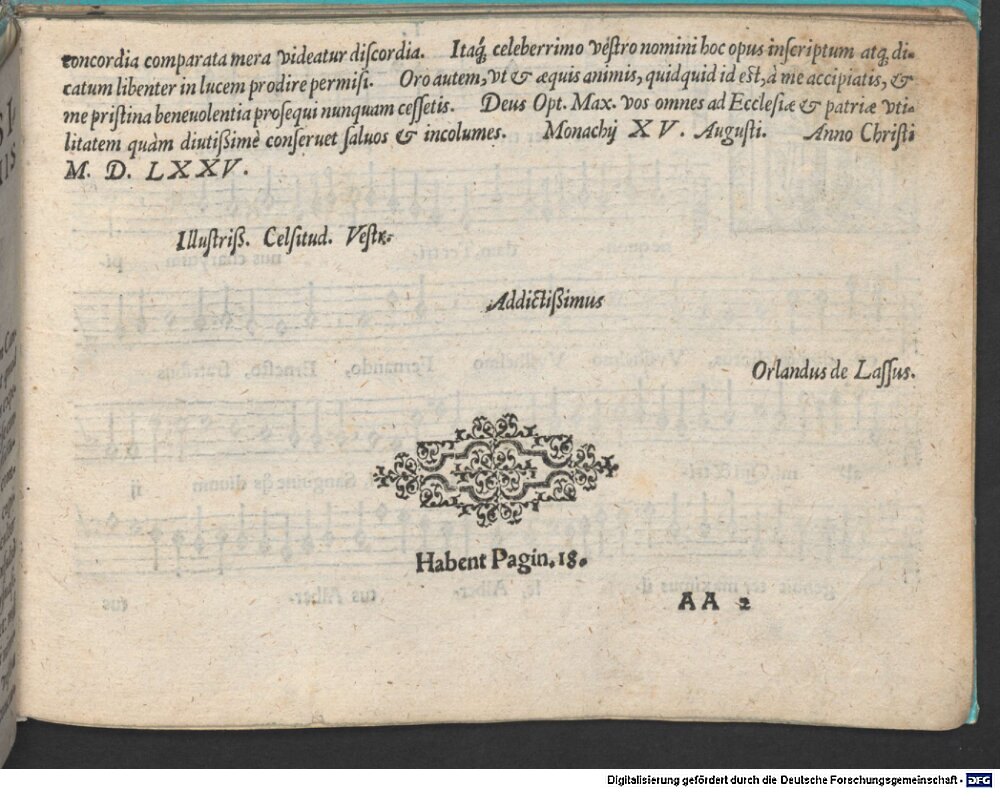 concordia comparata mera videatur discordia. Itaq́; celeberrimo vestro nomini hoc opus inscriptum atq; di-
catum libenter in lucem prodire permisi. Oro autem, vt & æquis animis, quidquid id est, à me accipiatis, &
me pristina beneuolentia prosequi nunquam cessetis. Deus Opt. Max. vos omnes ad Ecclesiæ & patriæ vti-
litatem quàm diutißimè conseruet saluos & incolumes. Monachij XV. Augusti. Anno Christi
M. D. LXXV.
Illustriß. Celsitud. Vestr.
Addictißimus
Orlandus de Lassus.
Habent Pagin. 18.
AA 2
Digitalisierung gefördert durch die Deutsche Forschungsgemeinschaft - DFG